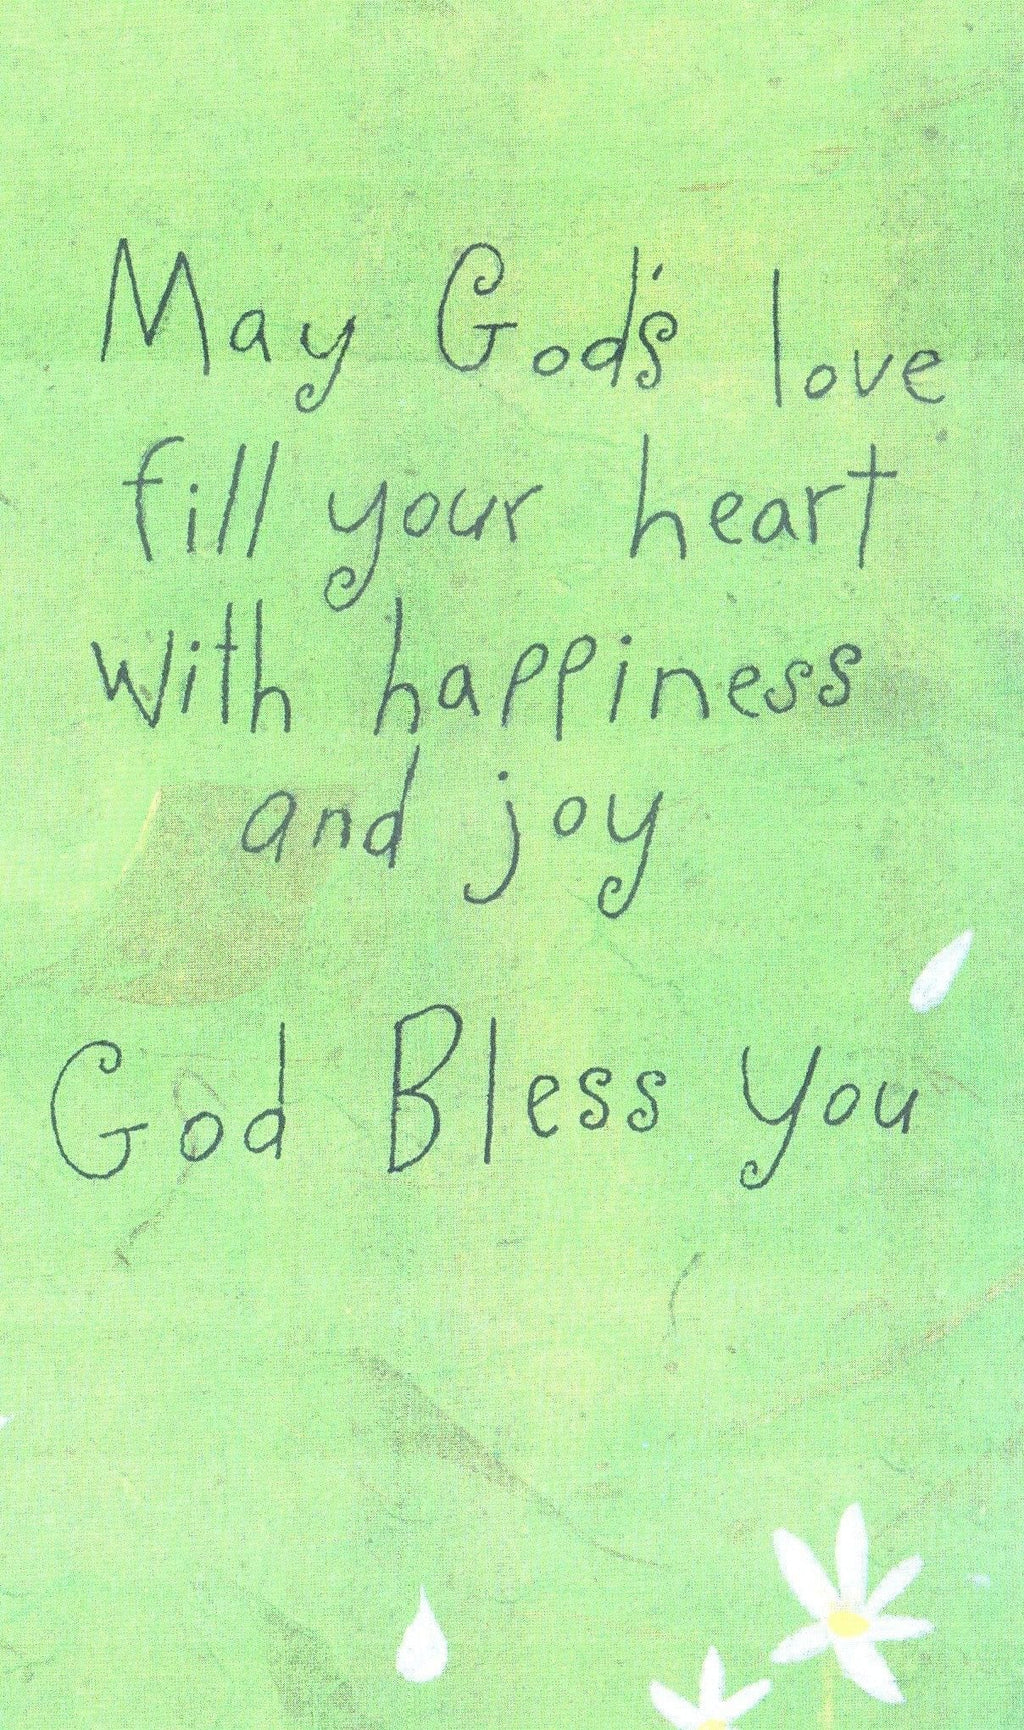 May God's love
fill your heart
with happiness
and joy
God Bless You